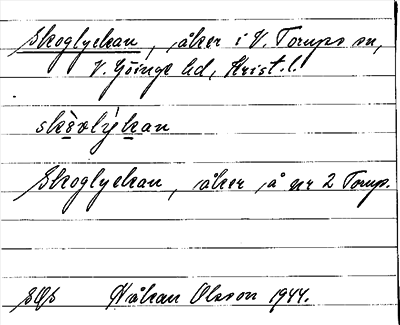 Skoglyckan, åker i V. Torups sn,
V. Göinge hd, Krist. l.
skòvlýkan
Skoglyckan, åker å nr 2 Torup.
Håkan Olsson 1944.